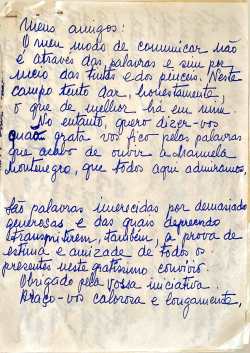 Meus amigos:
O meu modo de comunicar não
é através das palavras e sim por
meio das tintas e dos pincéis. Neste
campo tento dar, honestamente,
o que de melhor há em mim.
No entanto, quero dizer-vos
quão grata vos fico pelas palavras
que acabo de ouvir à Manuela
Montenegro, que todos aqui admiramos.
São palavras imerecidas por demasiado
generosas e das quais depreendo
transpirirem, também, a prova de
estima e amizade de todos os
presentes neste gratíssimo convívio.
Obrigado pela vossa iniciativa.
Abraço-vos calorosa e longamente